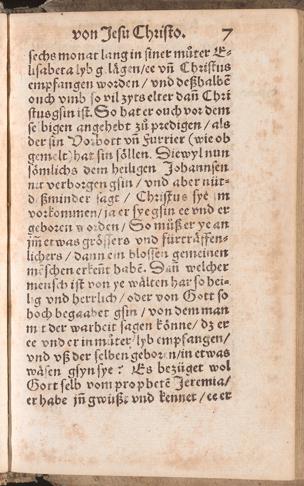 von Jesu Christo. 7
sechs monat lang in siner můter E-
lisabeta lyb glägen/ee vñ Christus
empfangen worden/ und deßhalbē
ouch umb so vil zyts elter dañ Chri
stus gsin ist. So hat er ouch vor dem
selbigen angehebt zů predigen/ als
der sin Vorbott vñ Furrier (wie ob
gemelt) har sin söllen. Diewyl nun
sömlichs dem heiligen Johansen
nit verborgen gsin / und aber nüt-
dißminder sagt / Christus sye im
vorkommen/ ja er sye gsin ee und er
geboren worden / So můß er ye an
jm etwas grössers und fürträffen-
lichers / dann ein blossen gemeinen
mēschen erkeñt habē. Dañ welcher
mensch ist von ye wälten har so hei-
lig und herrlich / oder von Gott so
hoch begaabet gsin / von dem man
mit der warheit sagen könne/ dz er
ee und er in můter lyb empfangen/
und uß der selben geboren/ in etwas
wäsen gsyn sye? Es bezüget wol
Gott selb vom prophetē Jeremia/
er habe jñ gwüßt und kennet / ee er